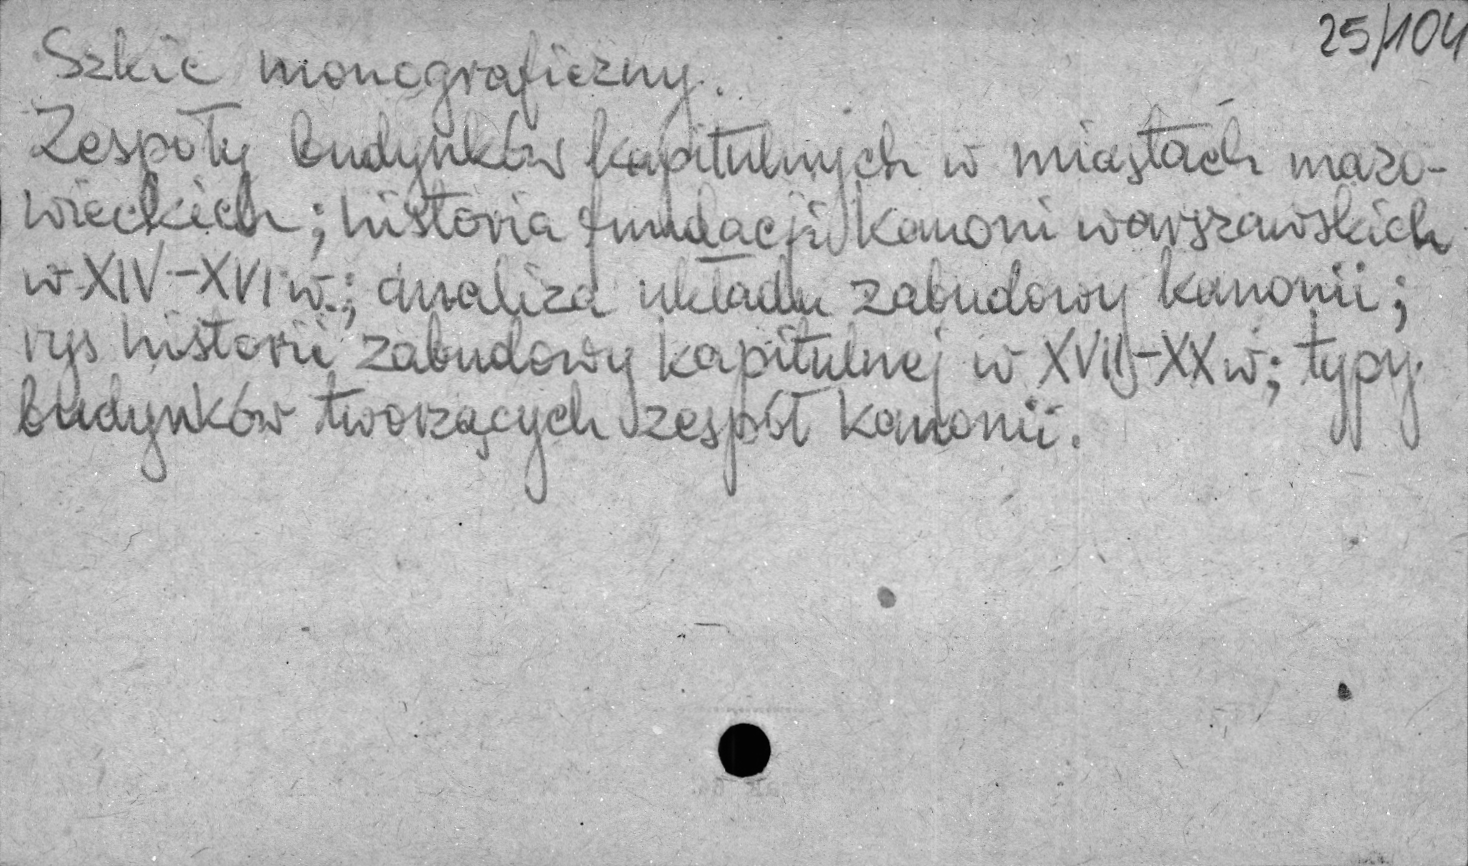 25/104
Szkic monograficzny.
Zespoły budynków kapitulnych w miastach mazo-
wieckich; historia fundacji kanonii warszawskich
w XIV-XVI w.; analiza układu zabudowy kanonii;
rys historii zabudowy kapitulnej w XVII-XX w; typy
budynków tworzących zespół kanonii.